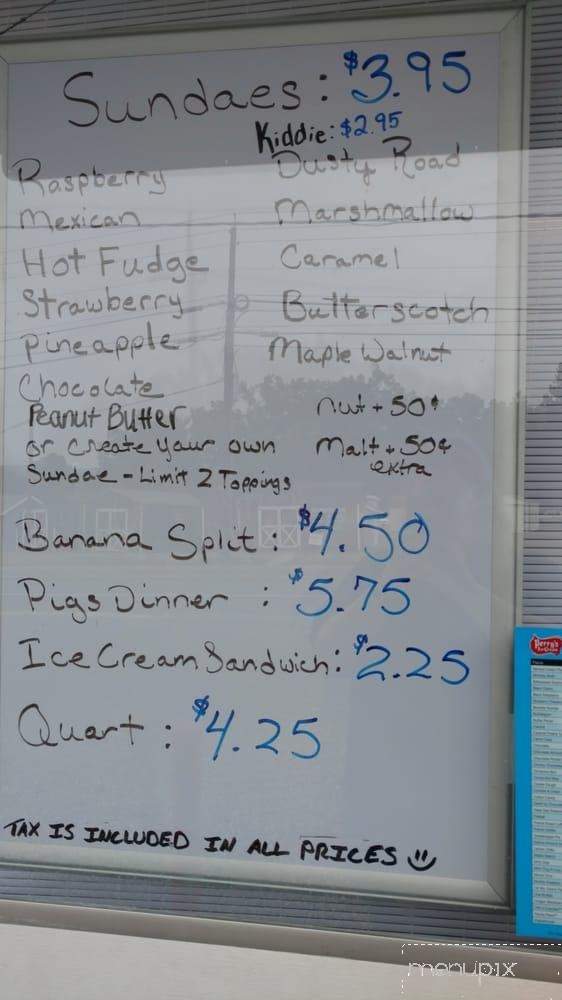 Sundaes: $3.95
Kiddie: $2.95
Raspberry
Mexican
Hot Fudge
Strawberry
Pineapple
Chocolate
Peanut Butter
or create your own
Sundae - Limit 2 Toppings
Dusty Road
Marshmallow
Caramel
Butterscotch
Maple Walnut
nut + 50¢
Malt + 50¢
extra
Banana Split: $4.50
Pigs Dinner : $5.75
Ice Cream Sandwich: $2.25
Quart : $4.25
TAX IS INCLUDED IN ALL PRICES
Perry's
menupix